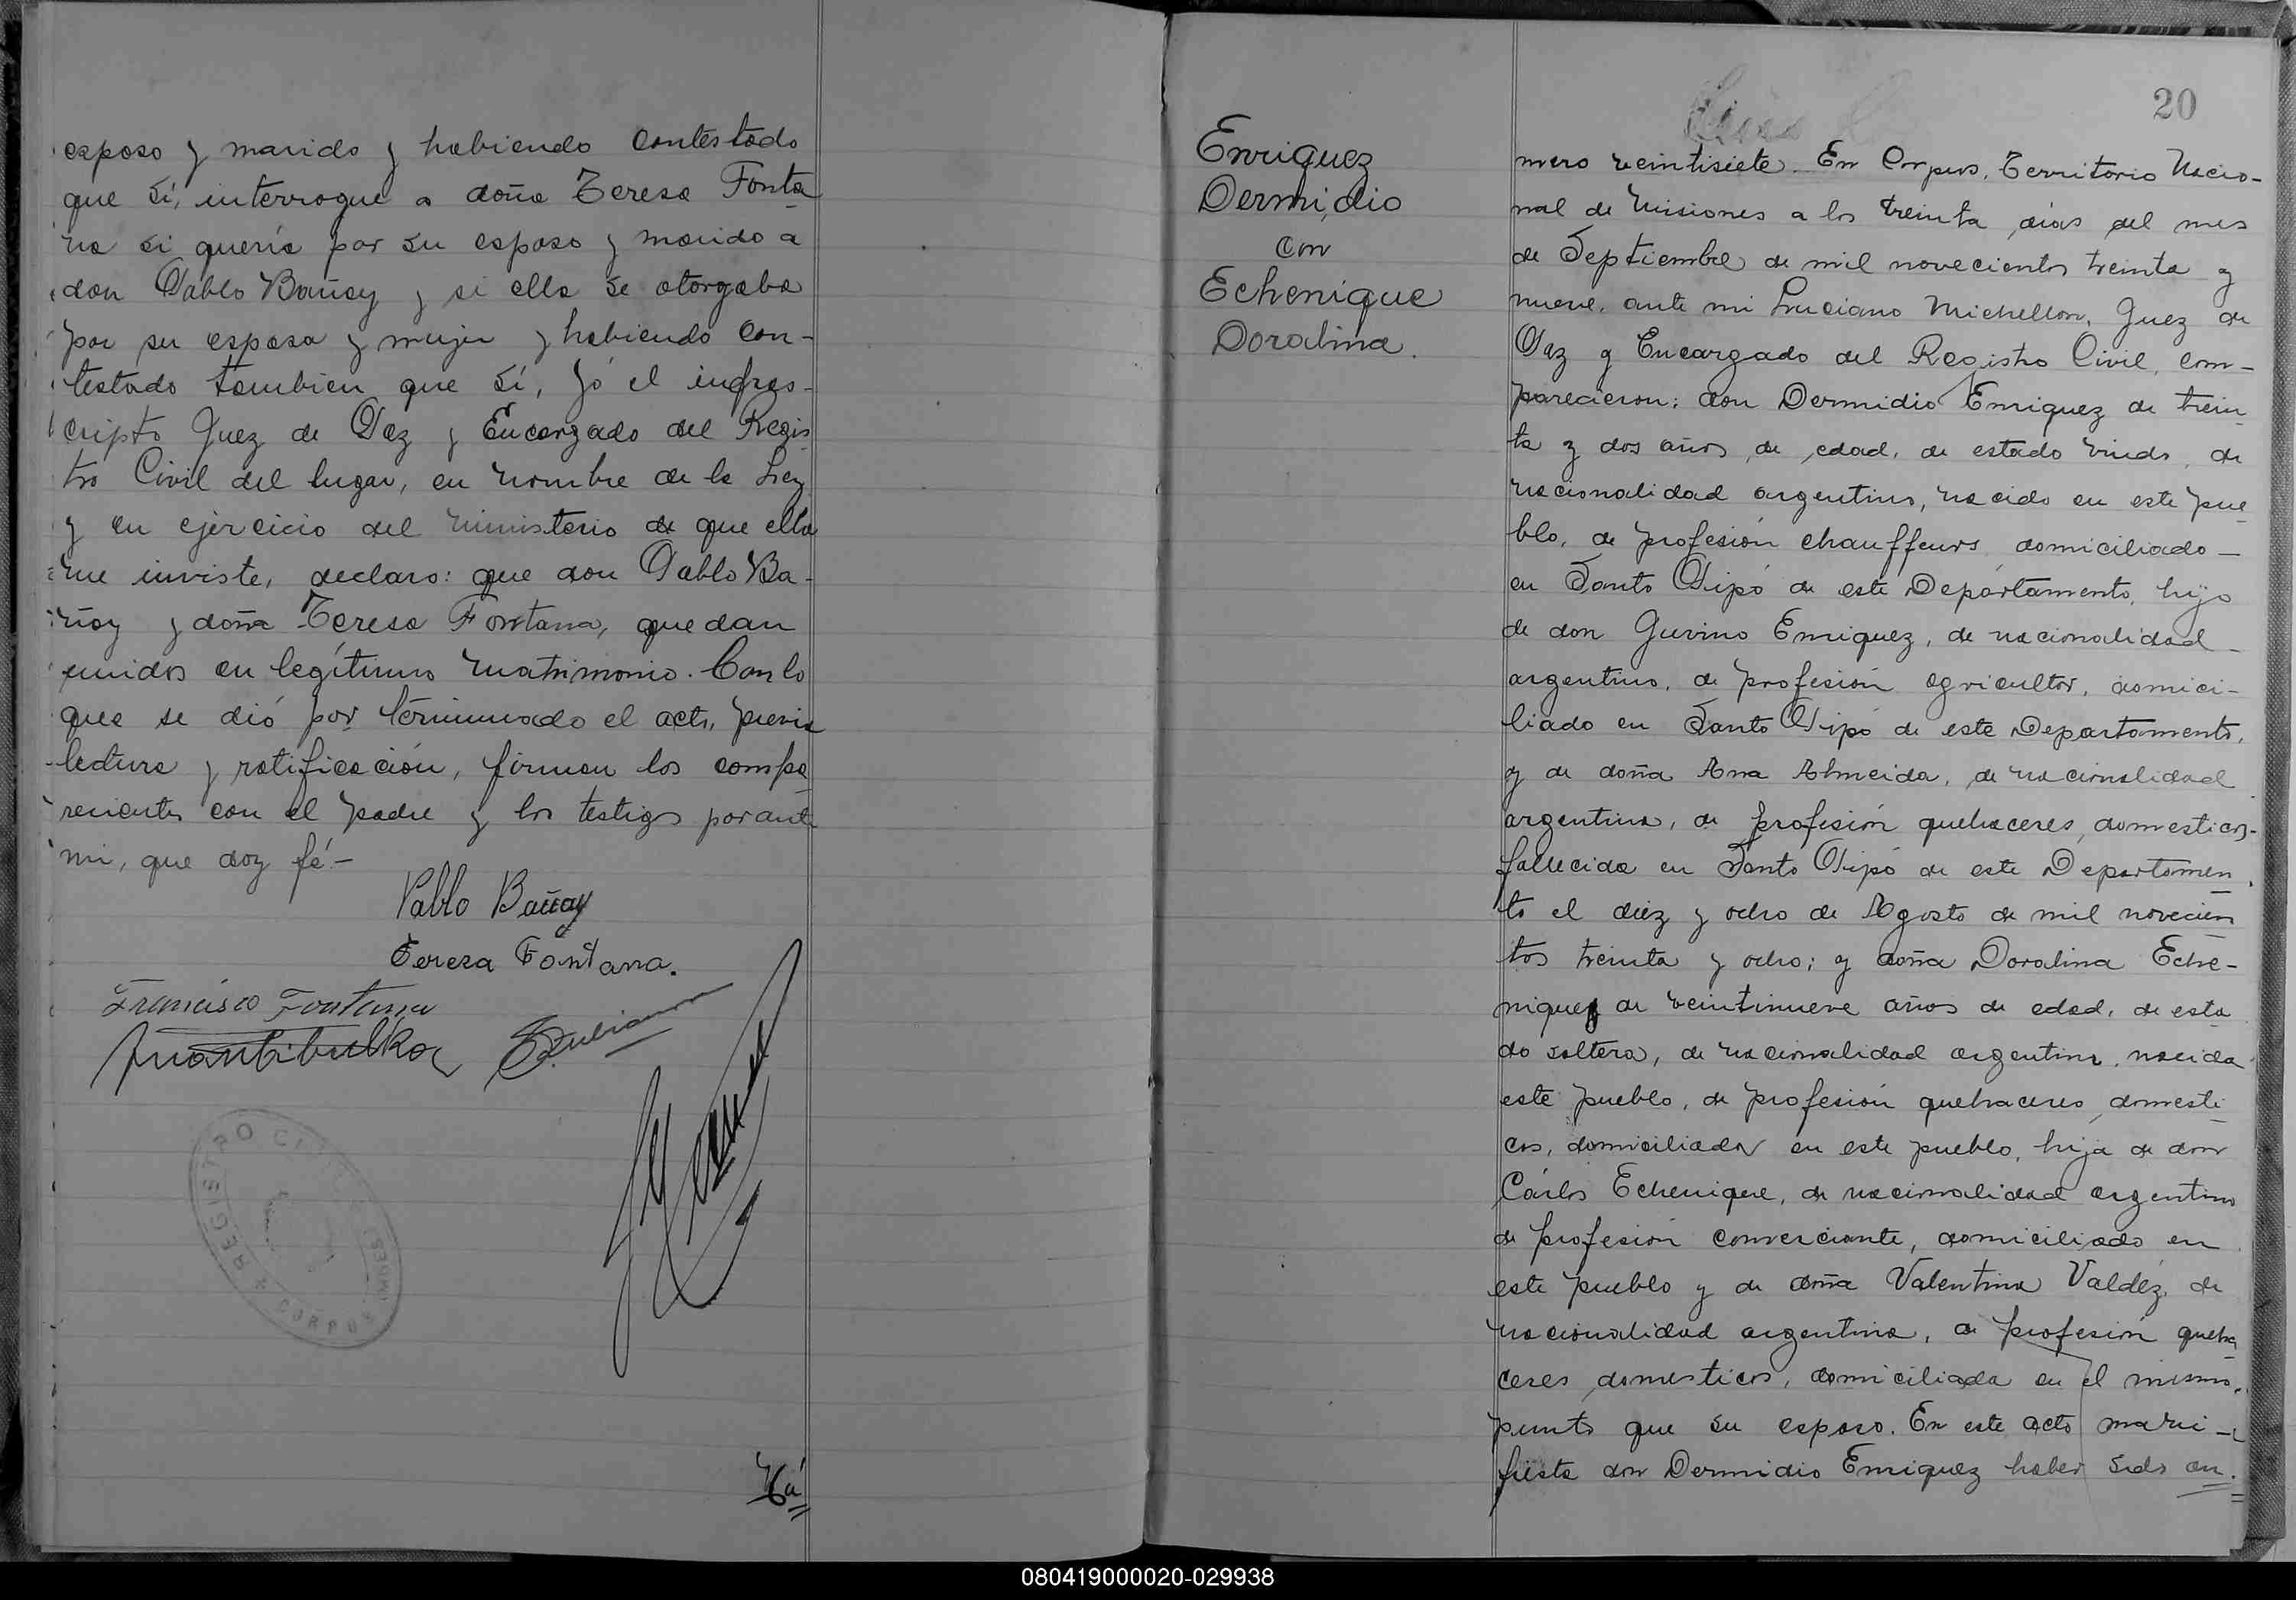 esposo y marido y habiendo contestado
que sí, interrogué a doña Teresa Fonta
na si quería por su esposo y marido a
don Pablo Bañay y si ella se otorgaba
por su esposa y mujer y habiendo con-
testado tambien que sí, yó el infras-
cripto Juez de Paz y Encargado del Regis
tro Civil del lugar, en nombre de la Ley
y en ejercicio del ministerio de que ella
me inviste, declaro: que don Pablo Ba-
ñay y doña Teresa Fontana, quedan
unidos en legítimo matrimonio. Con lo
que se dió por términado el acto, previa
lectura y ratificación, firman los compa
recientes con el padre y los testigos por ante
mi, que doy fé.-
Pablo Bañay
Teresa Fontana.
Francisco Fontana
REGISTRO CIVIL
CORPUS
MISIONES
Nú
20
Enriquez
Dermidio
con
Echenique
Doralina.
mero veintisiete. En Corpus, Territorio Nacio-
nal de Misiones a los treinta días del mes
de Septiembre de mil novecientos treinta y
nueve, ante mi Luciano Michellon, Juez de
Paz y Encargado del Registro Civil, com-
parecieron: don Dermidio Enriquez de trein
ta y dos años de edad, de estado viudo, de
nacionalidad argentino, nacido en este pue
blo, de profesión chauffeurs domiciliado-
en Santo Pipó de este Departamento, hijo
de don Guvino Enriquez, de nacionalidad-
argentino, de profesión agricultor, domici-
liado en Santo Pipó de este Departamento,
y de doña Ana Almeida, de nacionalidad
argentina, de profesión quehaceres domesticos-
fallecida en Santo Pipó de este Departamen
to el diez y ocho de Agosto de mil novecien
tos treinta y ocho; y doña Doralina Eche-
nique de veintinueve años de edad, de esta
do soltera, de nacionalidad argentina, nacida
este pueblo, de profesión quehaceres domesti
cos, domiciliada en este pueblo, hija de don
Cárlos Echenique, de nacionalidad argentino
de profesión comerciante, domiciliado en
este pueblo y de doña Valentina Valdéz, de
nacionalidad argentina, de profesión queha
ceres domesticos, domiciliada en el mismo
punto que su esposo. En este acto mani-
fiesta don Dermidio Enriquez haber sido en
080419000020-029938